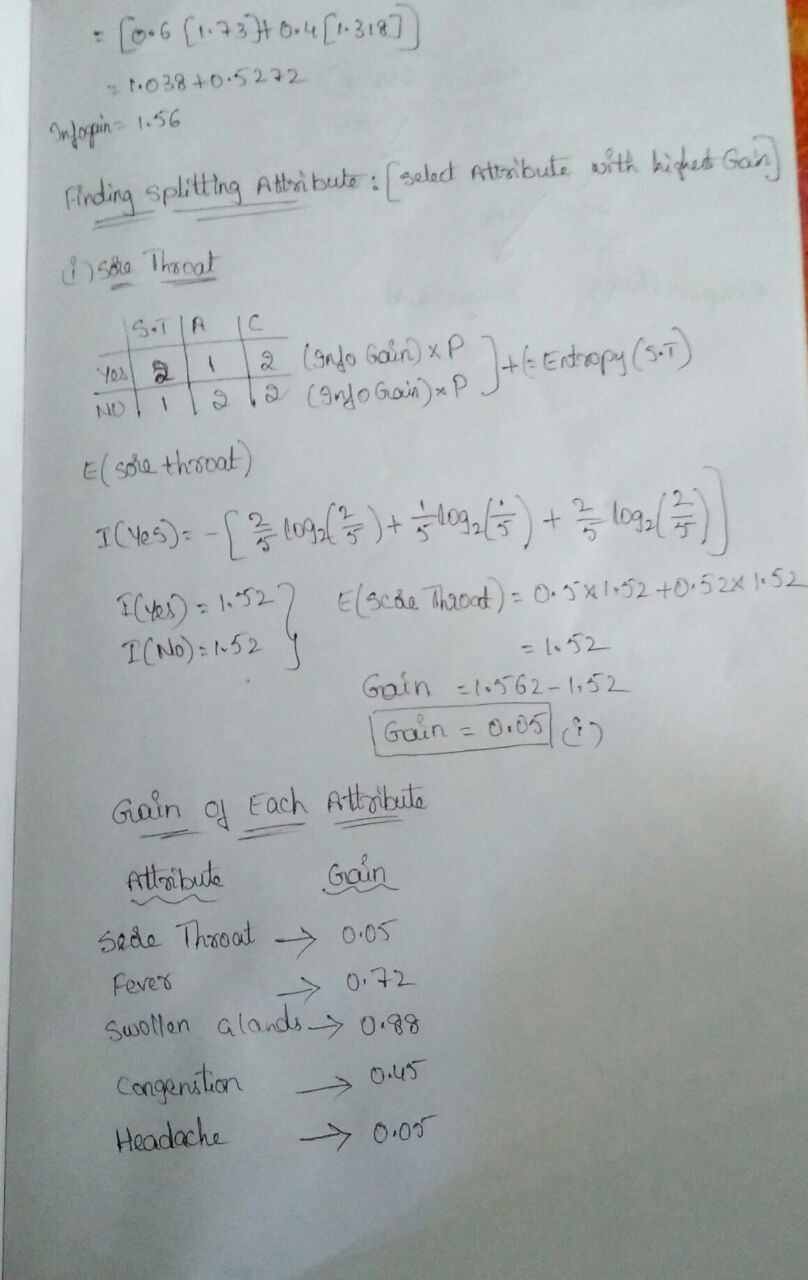 = [0.6 [1.73]+ 0.4 [1.318]]
= 1.038+0.5272
Infogain= 1.56
Finding Splitting Attribute : [select Attribute with highest Gain]
(i) Sore Throat
S.T | A | C
Yes 2 1 2 (Info Gain) x P
NO 1 2 2 (Info Gain) x P ] + (= Entropy (S.T)
E( sore throat)
I(Yes)= -[ 2/5 log2(2/5) + 1/5 log2(1/5) + 2/5 log2(2/5) ]
I(yes) = 1.52 } E(Score Throat) = 0.5x1.52+0.52x1.52
I(No)=1.52 = 1.52
Gain = 1.562-1.52
Gain = 0.05 (i)
Gain of Each Attribute
Attribute Gain
Sore Throat → 0.05
Fever → 0.72
Swollen Glands → 0.88
Congenstion → 0.45
Headache → 0.05